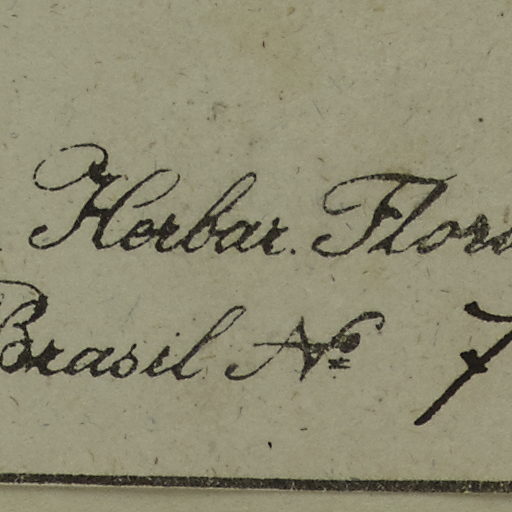 Herbar. Flora
Brasil No 7